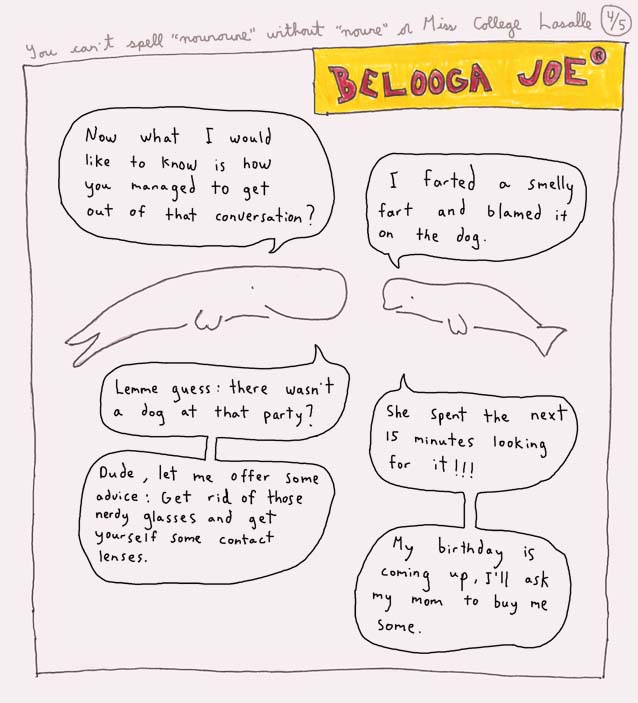 You can't spell "nounoune" without "noune" or Miss College Lasalle 4/5
BELOOGA JOE ®
Now what I would
like to know is how
you managed to get
out of that conversation?
I farted a smelly
fart and blamed it
on the dog.
Lemme guess: there wasn't
a dog at that party?
She spent the next
15 minutes looking
for it!!!
Dude, let me offer some
advice: Get rid of those
nerdy glasses and get
yourself some contact
lenses.
My birthday is
coming up, I'll ask
my mom to buy me
some.